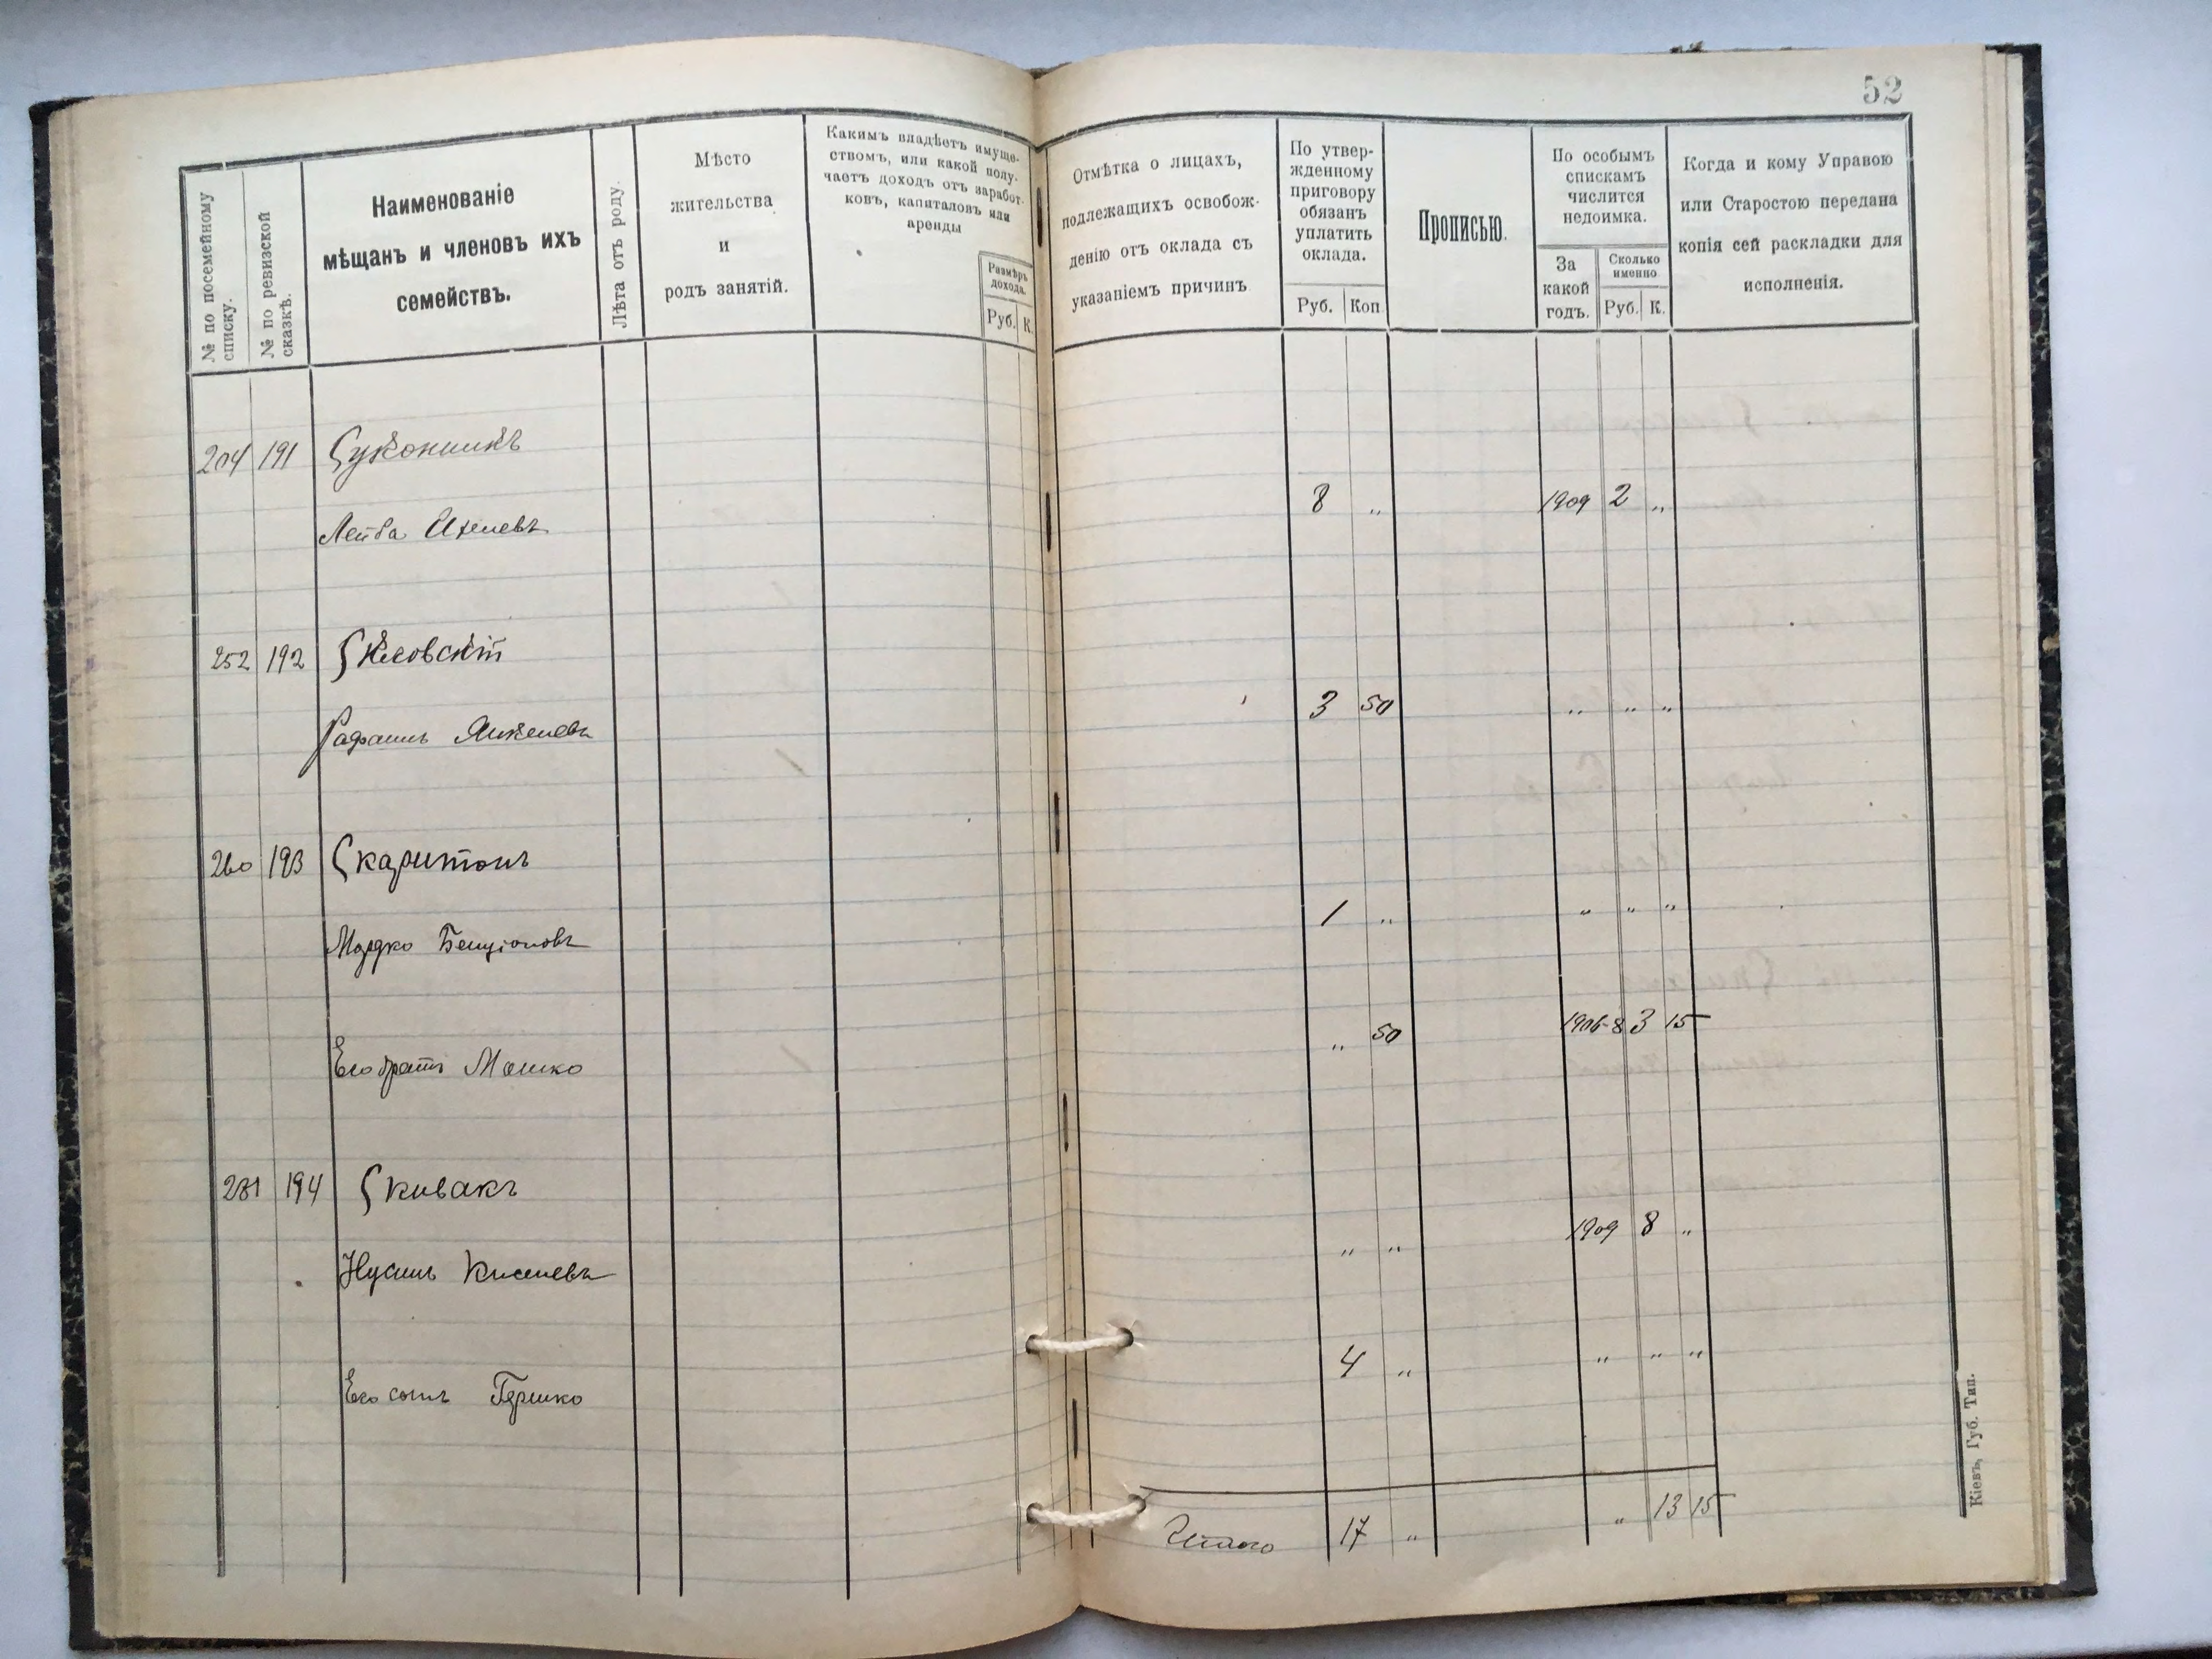 52
№ по посемейному
списку.
№ по ревизской
сказкѣ.
Наименованіе
мѣщанъ и членовъ ихъ
семействъ.
Лѣта отъ роду.
Мѣсто
жительства
и
родъ занятій.
Какимъ владѣетъ имуще-
ствомъ, или какой полу-
чаетъ доходъ отъ заработ-
ковъ, капиталовъ или
аренды
Размѣръ
дохода.
Руб. К.
Отмѣтка о лицахъ,
подлежащихъ освобож-
денію отъ оклада съ
указаніемъ причинъ
По утвер-
жденному
приговору
обязанъ
уплатить
оклада.
Руб. Коп.
Прописью.
По особымъ
спискамъ
числится
недоимка.
За
какой
годъ.
Сколько
именно
Руб. К.
Когда и кому Управою
или Старостою передана
копія сей раскладки для
исполненія.
204 191 Суконникъ
Лейба Ихелевъ 8 „ 1909 2 „
252 192 Скловскій
Рафаилъ Янкелевъ 3 50 „ „ „
260 193 Скаритонъ
Мордко Бенціоновъ 1 „ „ „ „
Его братъ Мошко „ 50 1906-8 3 15
281 194 Скивакъ
Нусинъ Киселевъ „ „ 1909 8 „
Его сынъ Гершко 4 „ „ „ „
Итого 17 „ „ 13 15
Кіевъ, Губ. Тип.